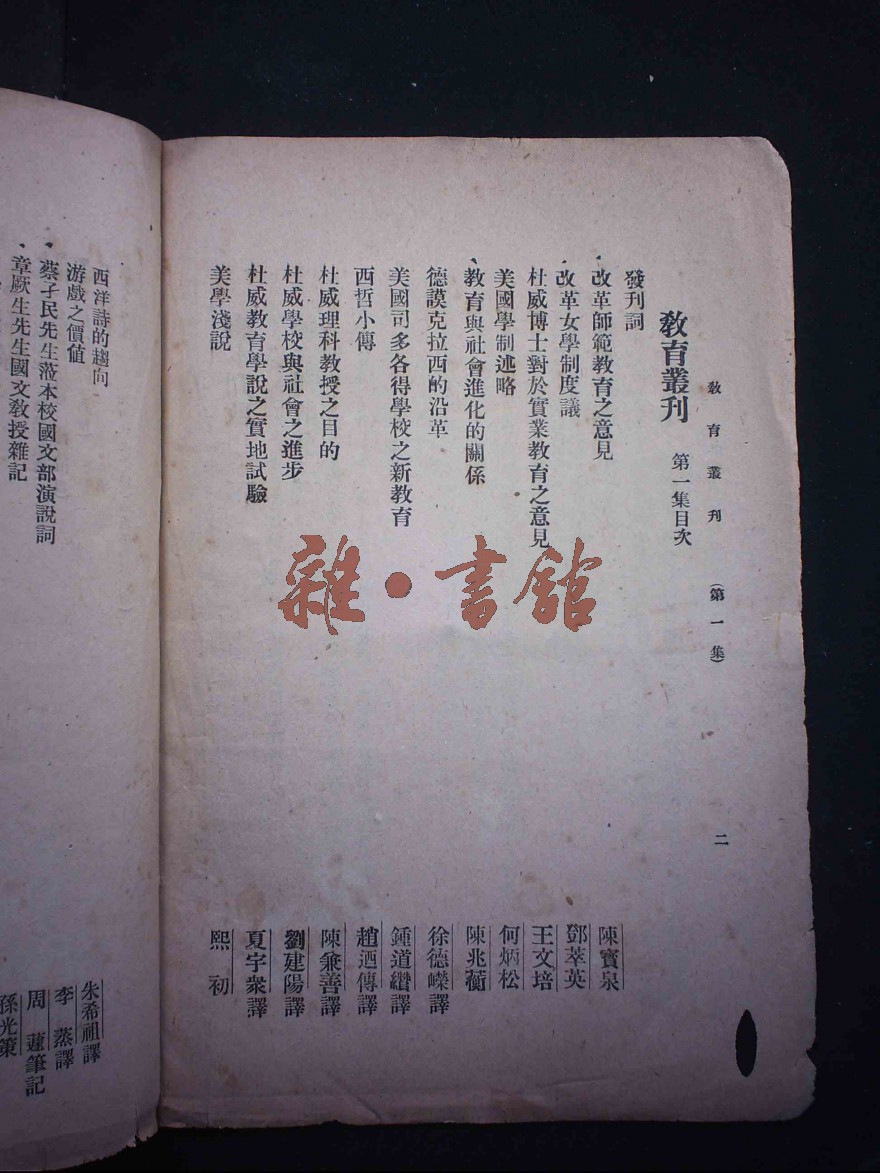 教育叢刊 (第一集) 二
教育叢刊 第一集目次
發刊詞
改革師範教育之意見 陳寶泉
改革女學制度議 鄧萃英
杜威博士對於實業教育之意見 王文培
美國學制述略 何炳松
教育與社會進化的關係 陳兆蘅
德謨克拉西的沿革 徐德嶸譯
美國司多各得學校之新教育 鍾道纘譯
西哲小傳 趙迺傳譯
杜威理科教授之目的 陳兼善譯
杜威學校與社會之進步 劉建陽譯
杜威教育學說之實地試驗 夏宇衆譯
美學淺說 熙初
西洋詩的趨向 朱希祖譯
游戲之價值 李蒸譯
蔡孑民先生蒞本校國文部演說詞 周蘧筆記
章厥生先生國文教授雜記 孫光策
雜·書館